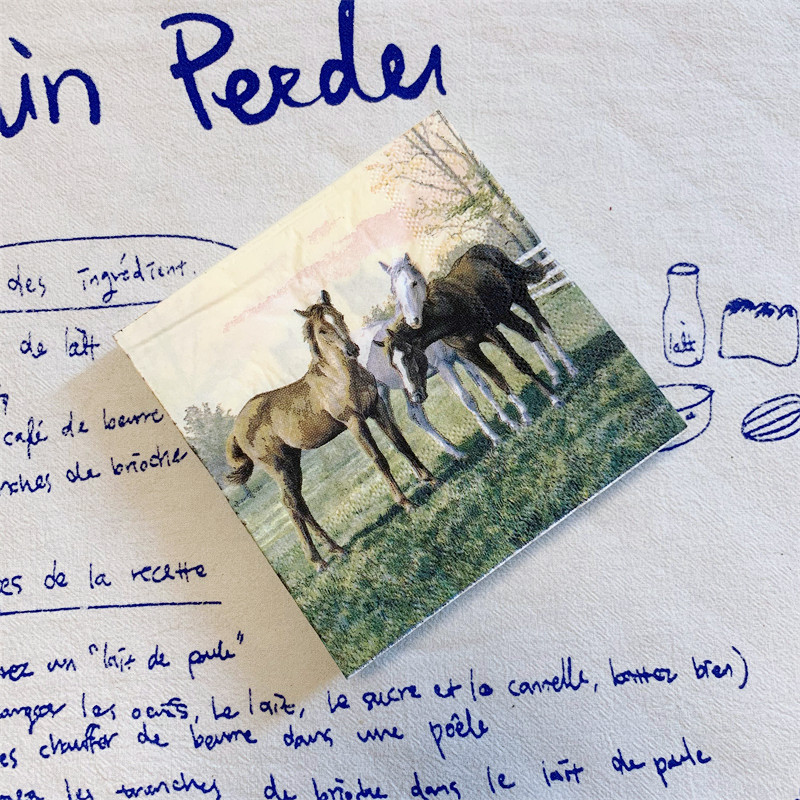 in Perdu
des ingrédient.
de lait
café de beurre
nches de brioche
lait
es de la recette
rez un "lait de poule"
angez les oeufs, le lait, le sucre et la cannelle, battez bien)
es chauffer de beurre dans une poêle
les tranches de brioche dans le lait de poule